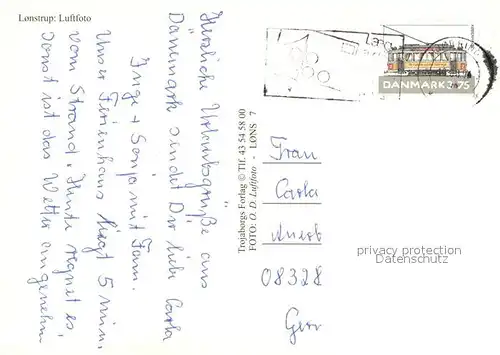 Lønstrup: Luftfoto
Herzliche Urlaubsgrüße aus
Dänemark sendet Dir liebe Carla
Inge + Sonja mit Fam.
Unser Ferienhaus liegt 5 min
vom Strand. Heute regnet es,
sonst ist das Wetter angenehm
Trojaborgs Forlag © Tlf. 43 54 58 00
FOTO: O. D. Luftfoto - LØNS 7
DANMARK 3.75
Frau
Carla
08328
privacy protection
Datenschutz